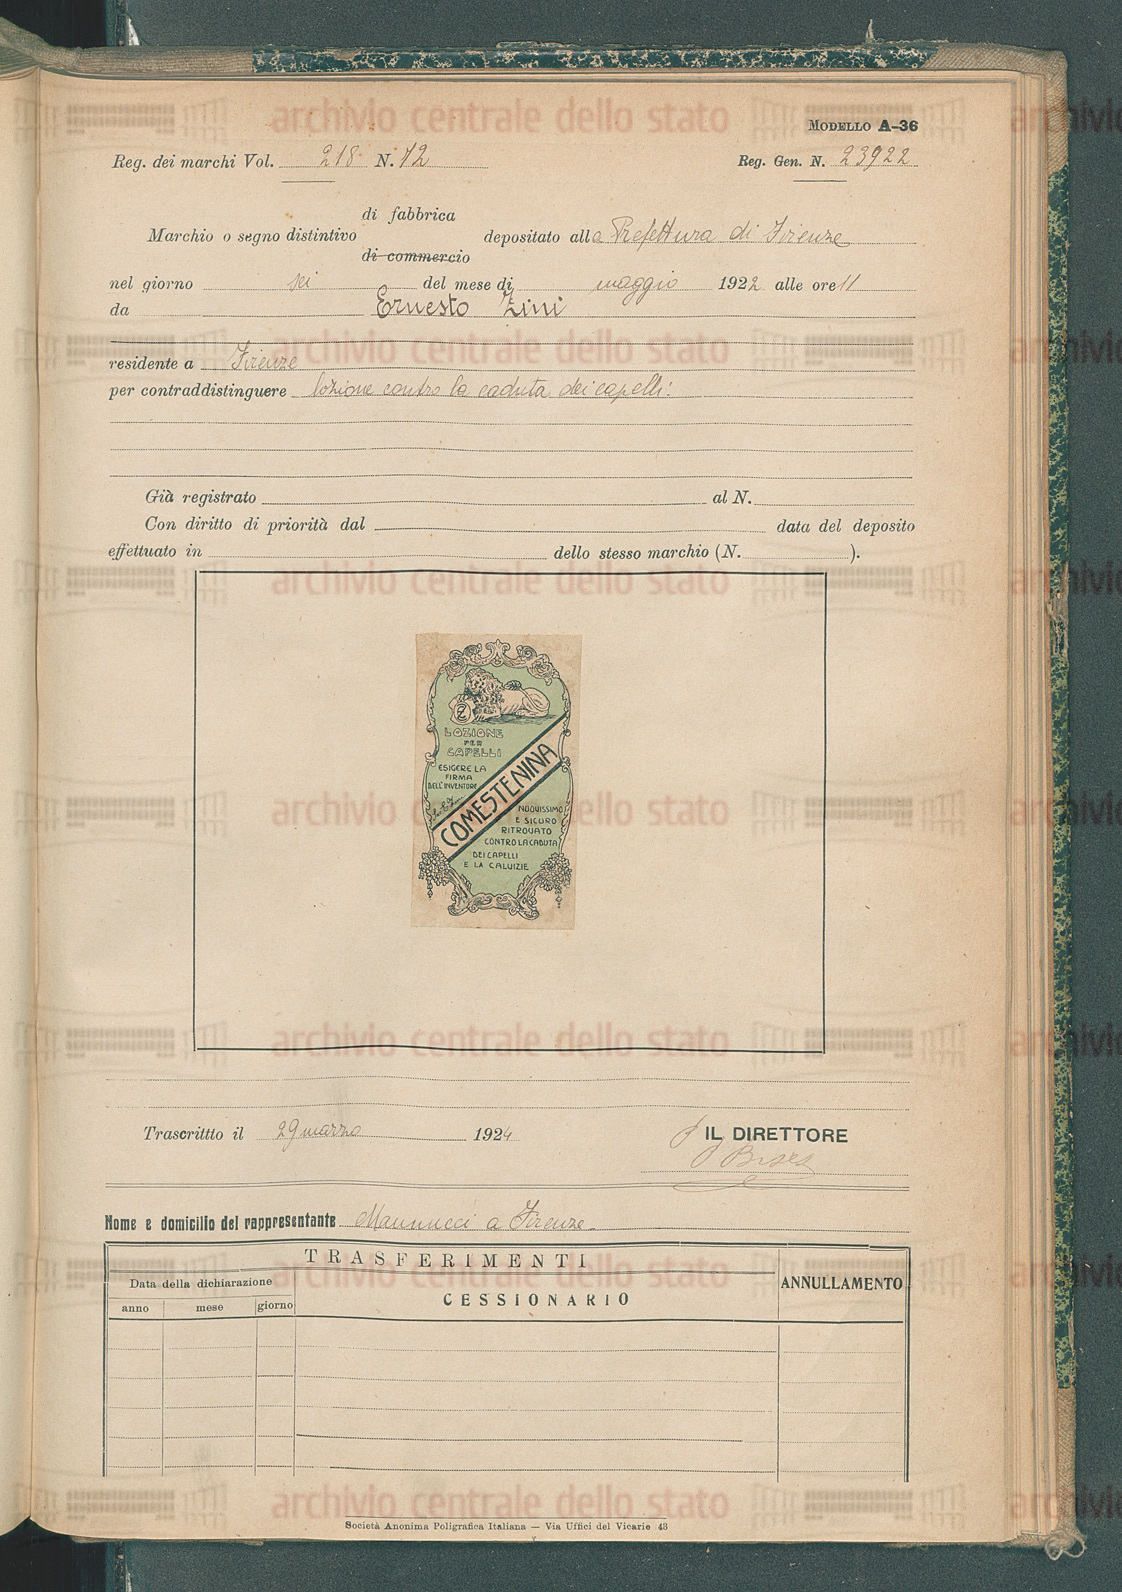 MODELLO A-36
Reg. dei marchi Vol. 218 N. 72 Reg. Gen. N. 23922
di fabbrica
Marchio o segno distintivo depositato alla Prefettura di Firenze
di commercio
nel giorno sei del mese di maggio 1922 alle ore 11
da Ernesto Zini
residente a Firenze
per contraddistinguere lozione contro la caduta dei capelli.
Già registrato al N.
Con diritto di priorità dal data del deposito
effettuato in dello stesso marchio (N. ).
LOZIONE
PER
CAPELLI
ESIGERE LA
FIRMA
DELL'INVENTORE
COMESTENINA
NUOVISSIMO
E SICURO
RITROVATO
CONTRO LA CADUTA
DEI CAPELLI
E LA CALVIZIE
Trascrittto il 29 marzo 1924 IL DIRETTORE
Nome e domicilio del rappresentante Mannucci a Firenze
TRASFERIMENTI
Data della dichiarazione ANNULLAMENTO
anno mese giorno CESSIONARIO
Società Anonima Poligrafica Italiana — Via Uffici del Vicario 43
archivio centrale dello stato
archivio centrale dello stato
archivio centrale dello stato
archivio centrale dello stato
archivio centrale dello stato
archivio centrale dello stato
archivio centrale dello stato